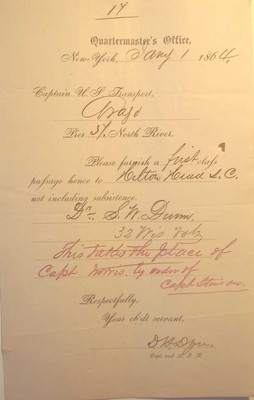 17
Quartermaster's Office,
New-York, Jany 1 1864,
Captain U. S. Transport.
Arago
Pier 37 North River.
Please furnish a first class
passage hence to Hilton Head S. C.
not including subsistence.
Dr. S. W. Dunn,
32 Wis Vols
This takes the place of
Capt Norris. by order of
Capt
Respectfully,
Your ob'dt servant,
Capt. and A. Q. M.